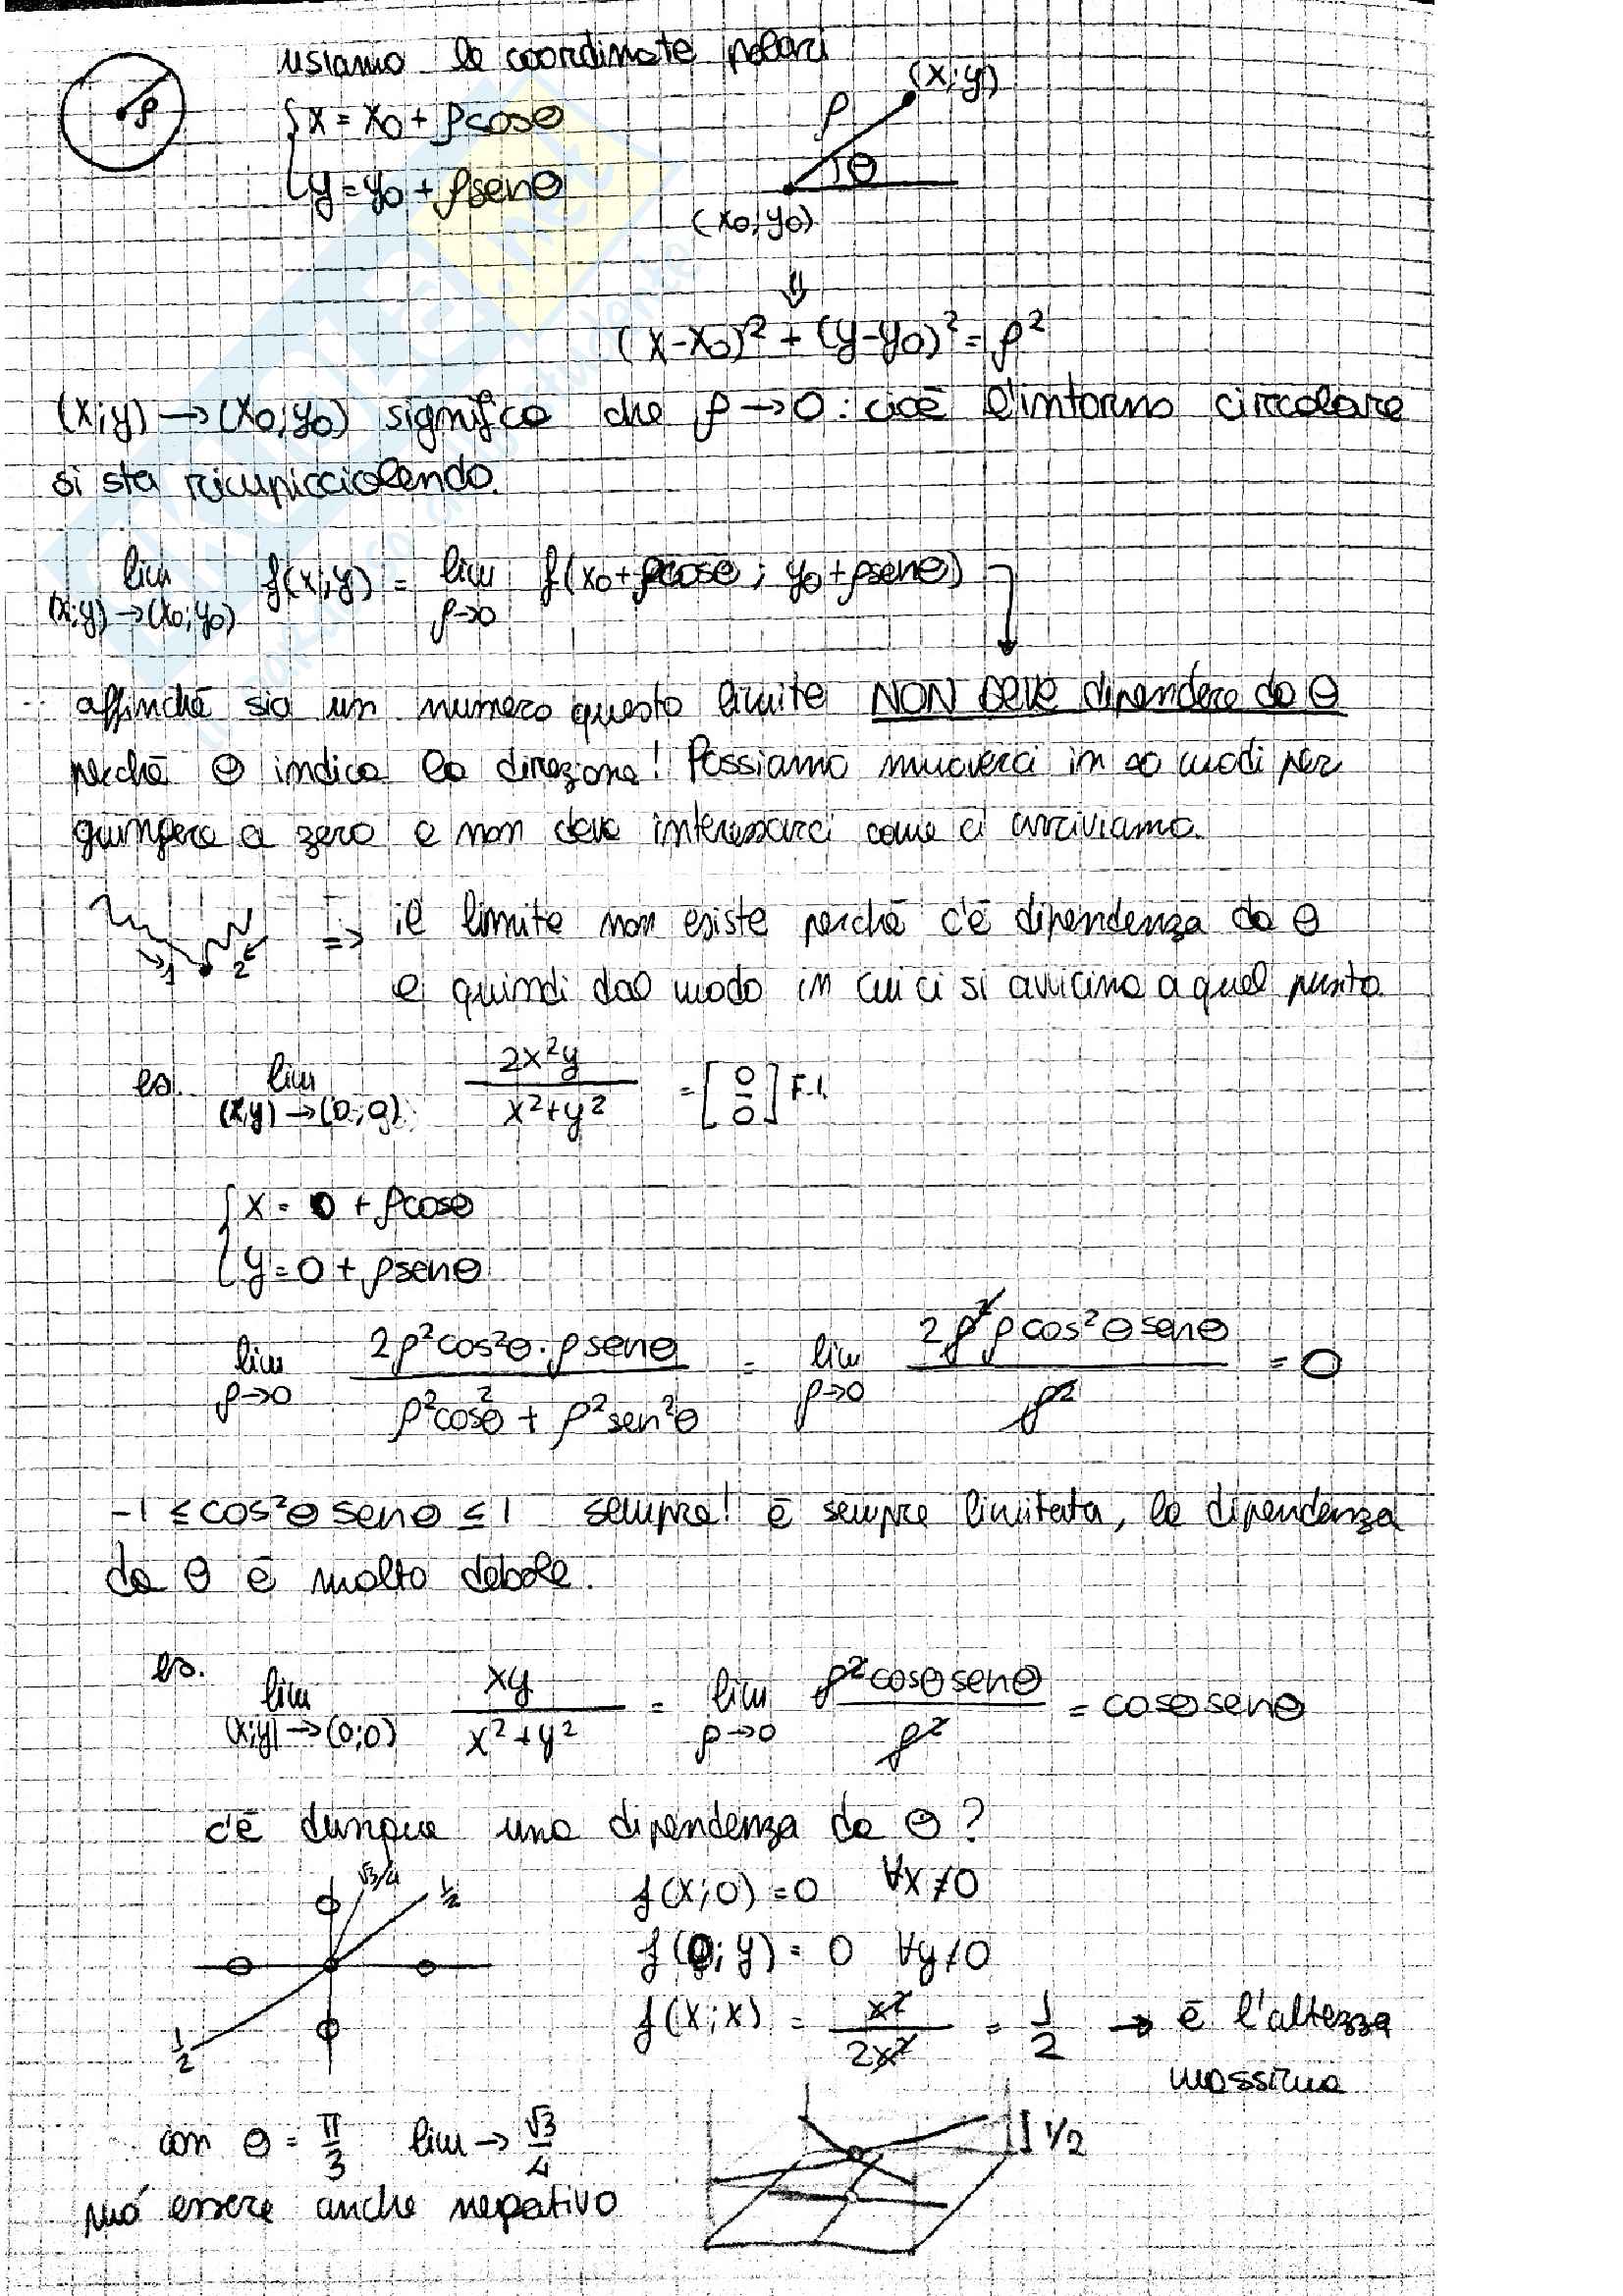 usiamo le coordinate polari
ρ
{x = x0 + ρcosθ
y = y0 + ρsenθ
(x;y)
ρ
θ
(x0;y0)
⇓
(x-x0)² + (y-y0)² = ρ²
(x;y) → (x0;y0) significa che ρ → 0 : cioè l'intorno circolare
si sta rimpicciolendo.
lim f(x;y) = lim f(x0+ρcosθ ; y0+ρsenθ)
(x;y)→(x0;y0) ρ→0
affinché sia un numero questo limite NON DEVE dipendere da θ
perché θ indica la direzione! Possiamo muoverci in ∞ modi per
giungere a zero e non deve interessarci come ci arriviamo.
1 2 => il limite non esiste perché c'è dipendenza da θ
e quindi dal modo in cui ci si avvicina a quel punto
es. lim 2x²y / x²+y² = [0/0] F.I.
(x;y)→(0;0)
{x = 0 + ρcosθ
y = 0 + ρsenθ
lim 2ρ²cos²θ·ρsenθ / ρ²cos²θ + ρ²sen²θ = lim 2ρ²ρcos²θsenθ / ρ² = 0
ρ→0 ρ→0
-1 ≤ cos²θ senθ ≤ 1 sempre! è sempre limitata, la dipendenza
da θ è molto debole.
es. lim xy / x²+y² = lim ρ²cosθsenθ / ρ² = cosθsenθ
(x;y)→(0;0) ρ→0
c'è dunque una dipendenza da θ?
√3/4
1/2
1/2
f(x;0) = 0 ∀x≠0
f(0;y) = 0 ∀y≠0
f(x;x) = x²/2x² = 1/2 → è l'altezza
massima
con θ = π/3 lim → √3/4
può essere anche negativo
1/2